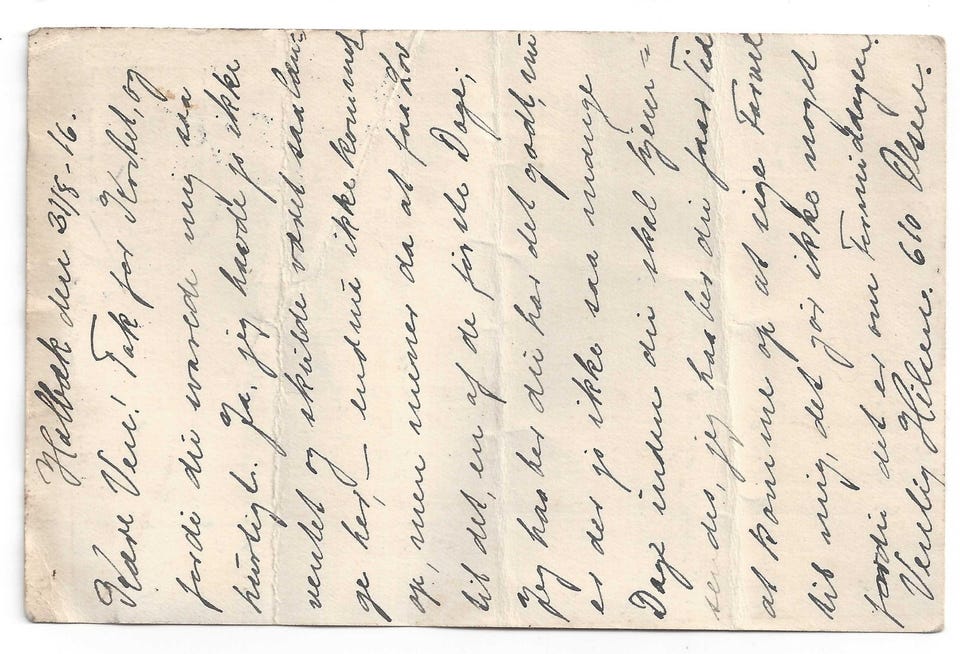 Hallbæk den 31/8-16.
Kære Ven! Tak for Kortet, og
fordi du svarede mig saa
hurtigt. Ja, jeg havde jo ikke
ventet og skulde været saalæn=
ge her, – endnu ikke kommet
op, men mener da at faa Lov
til det, en af de første Dage;
Jeg haaber du har det godt, nu
er der jo ikke saa mange
Dage inden du skal hjem=
sendes, jeg haaber du faar Tid
at komme op at sige Farvel
til mig, det gør ikke noget
fordi det er om Formiddagen.
Venlig Hilsen. 610 Olsen.